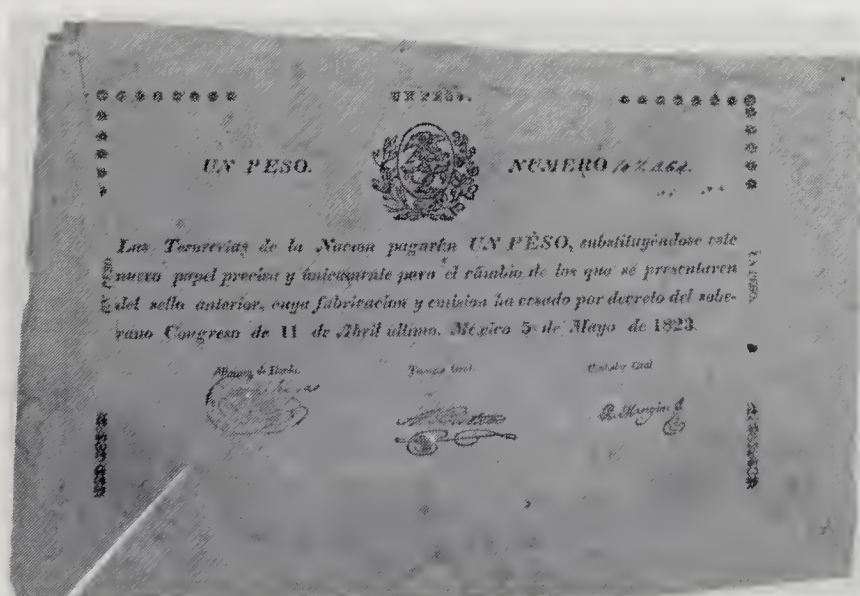 UN PESO.
UN PESO. NUMERO
Las Tesorerías de la Nacion pagarán UN PÉSO, substituyéndose este
nuevo papel precisa y únicamente para el cámbio de los que se presentaren
del sello anterior, cuya fabricacion y emision ha cesado por decreto del sobe-
rano Congreso de 11 de Abril último. México 5 de Mayo de 1823.
UN PESO
UN PESO
Tesoro Gral.
Contador Gral